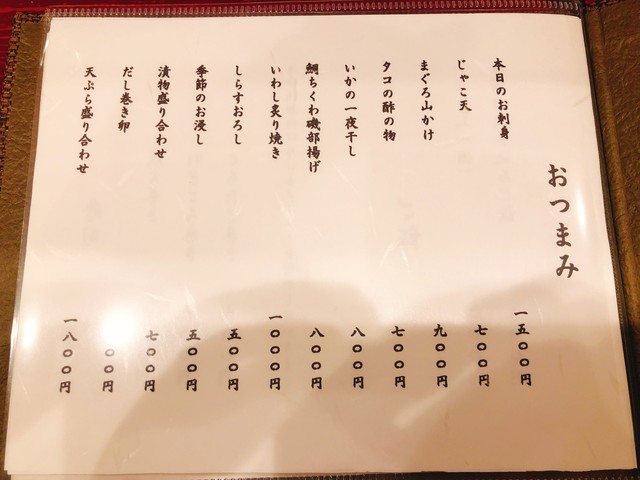 おつまみ
本日のお刺身
一五〇〇円
じゃこ天
七〇〇円
まぐろ山かけ
九〇〇円
タコの酢の物
七〇〇円
いかの一夜干し
八〇〇円
鯛ちくわ磯部揚げ
八〇〇円
いわし炙り焼き
一〇〇〇円
しらすおろし
五〇〇円
季節のお浸し
五〇〇円
漬物盛り合わせ
七〇〇円
だし巻き卵
〇〇円
天ぷら盛り合わせ
一八〇〇円